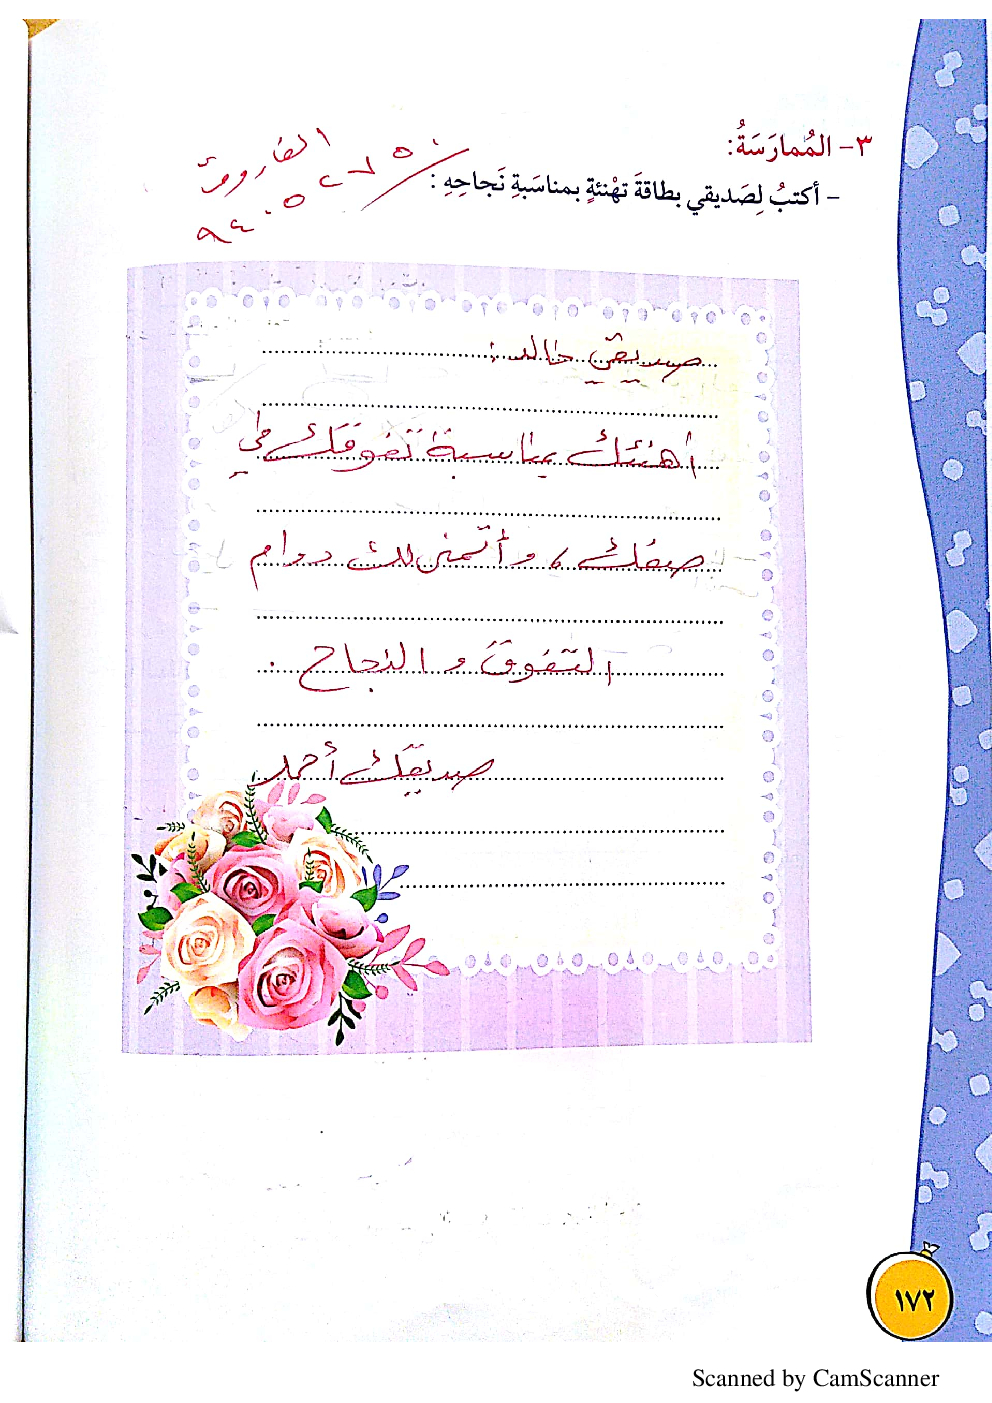 ٣- المُمارَسَةُ:
- أكتبُ لِصَديقي بطاقَةَ تهْنئةٍ بمناسَبةِ نَجاحِهِ :
الفاروق
صديقي خالد :
أهنئك بمناسبة تفوقك في
صفك ، و أتمنى لك دوام
التفوق و النجاح .
صديقك أحمد
١٧٢
Scanned by CamScanner